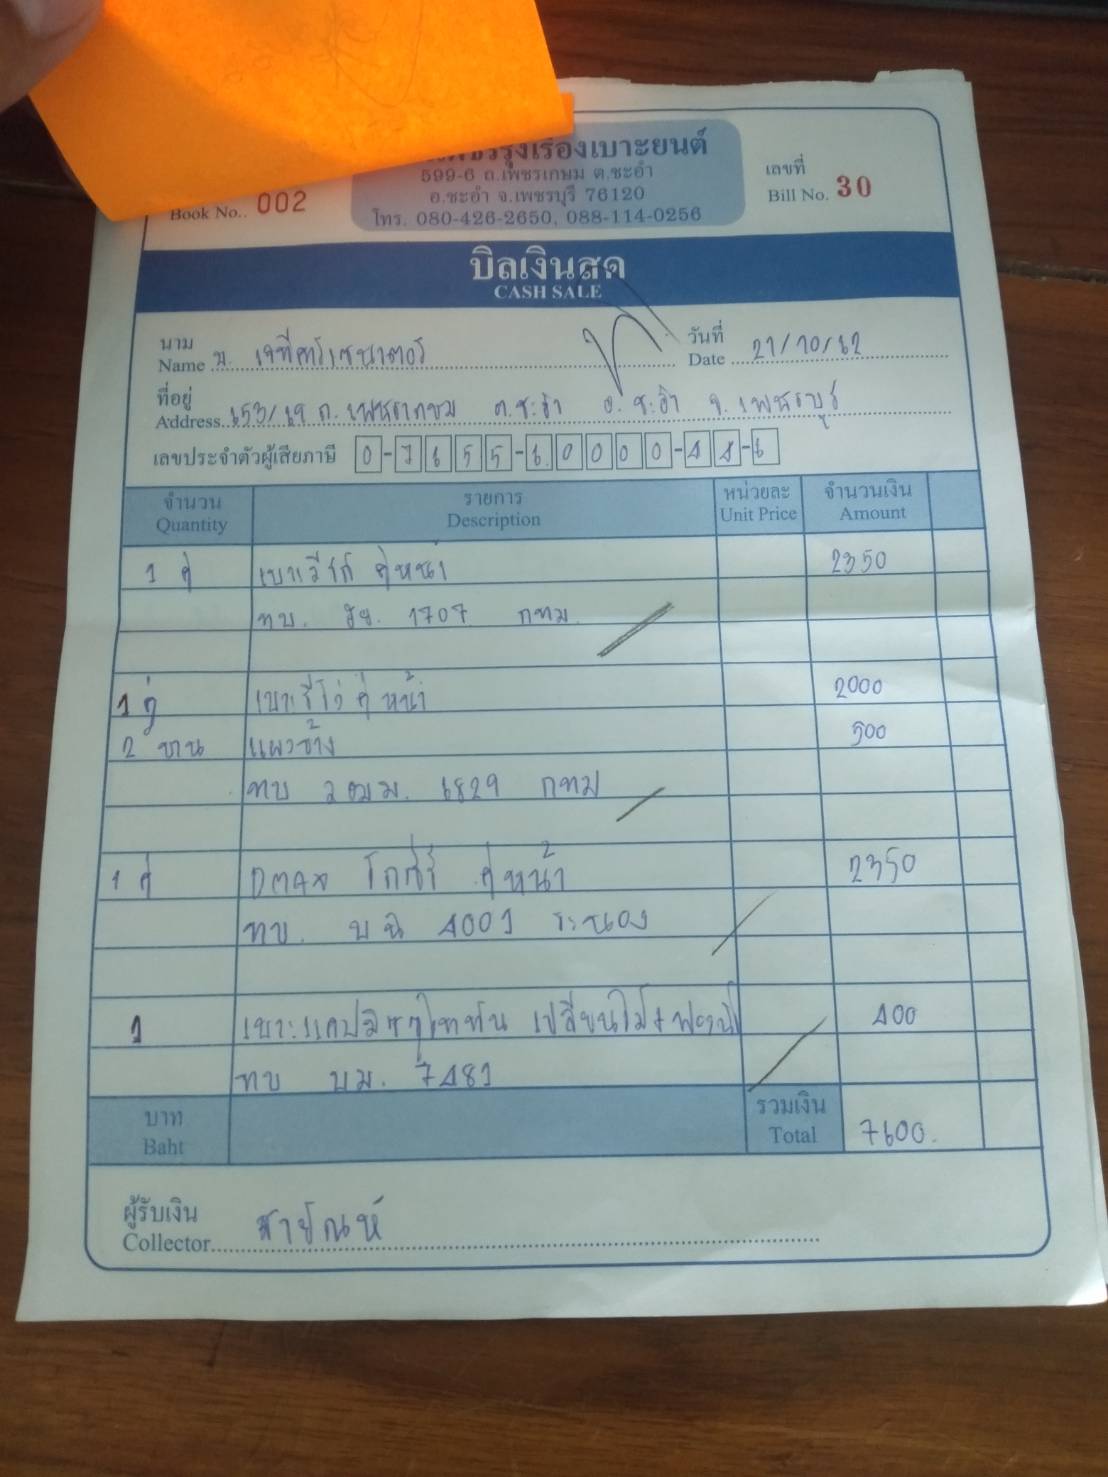 รุ่งเรืองเบาะยนต์
599-6 ถ.เพชรเกษม ต.ชะอำ
อ.ชะอำ จ.เพชรบุรี 76120
โทร. 080-426-2650, 088-114-0256
Book No.. 002
เลขที่
Bill No. 30
บิลเงินสด
CASH SALE
นาม
Name
วันที่
Date 21/10/62
ที่อยู่
Address 653/19 ถ.เพชรเกษม ต.ชะอำ อ.ชะอำ จ.เพชรบุรี
เลขประจำตัวผู้เสียภาษี 0-7655-60000-44-6
จำนวน รายการ หน่วยละ จำนวนเงิน
Quantity Description Unit Price Amount
1 คู่ เบาะวีโก้ คู่หน้า 2350
ทบ. 1707 กทม
1 คู่ เบาะรีโว่ คู่หน้า 2000
2 บาน แผงข้าง 500
ทบ 2ฒม. 6829 กทม
1 คู่ DMAX คู่หน้า 2350
ทบ. บฉ 4001 ระนอง
1 400
ทบ บม. 7481
บาท รวมเงิน
Baht Total 7600.
ผู้รับเงิน
Collector สายัณห์